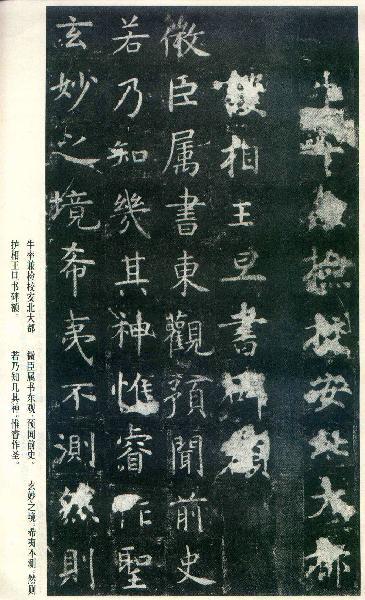 檢校安北大都
護相王旦書碑額
微臣属書東觀預聞前史
若乃知幾其神惟睿作聖
玄妙之境希夷不測然則
兼检校安北大都
护相王旦书碑额。
微臣属书东观，预闻前史。
若乃知几其神，惟睿作圣。
玄妙之境，希夷不测，然则